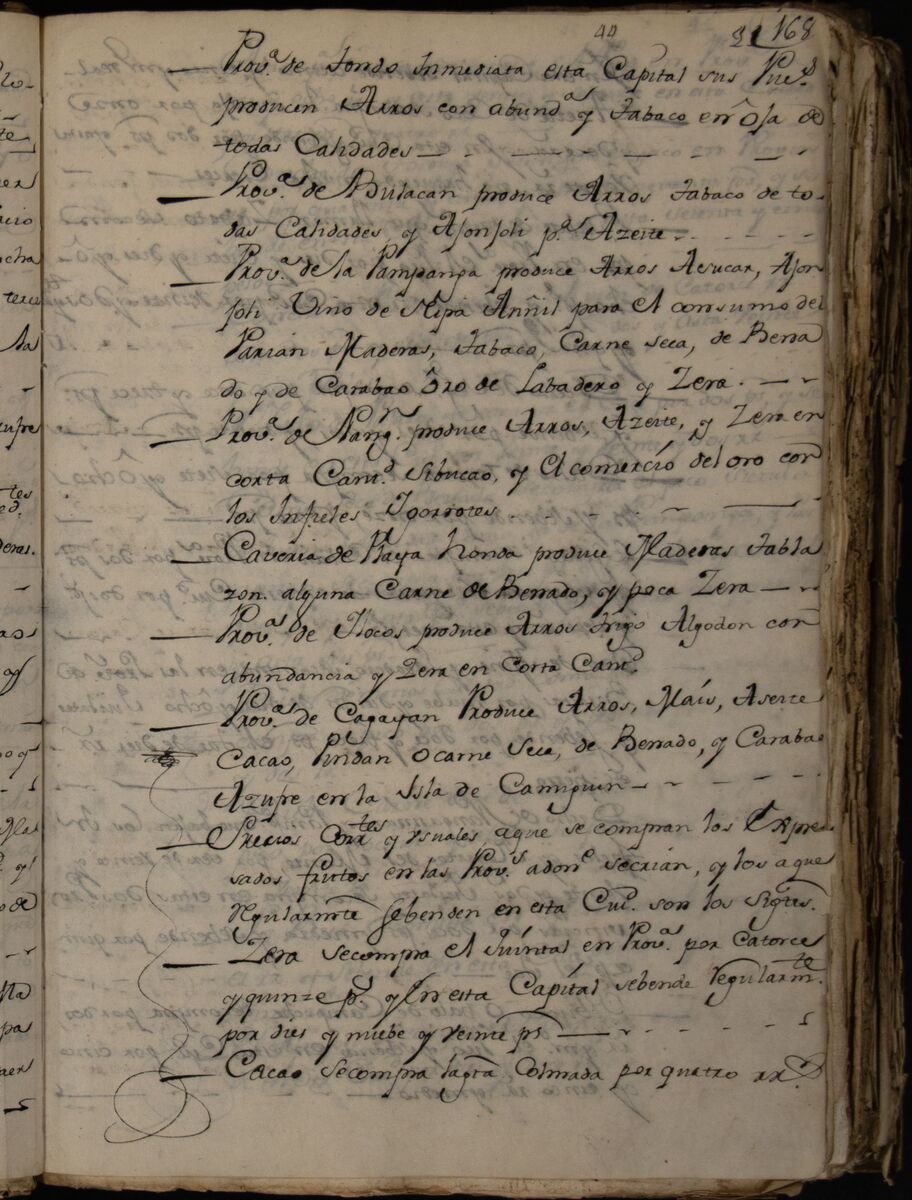 44 21 168
Prov.ª de Tondo Inmediata esta Capital sus Pue.s
producen Arros con abund.ª y Tabaco en ôja de
todas Calidades
Prov.ª de Bulacan produce Arros Tabaco de to-
das Calidades y Ajonjoli p.ª Azeite
Prov.ª de la Pampanga produce Arros Asucar, Ajon-
joli Vino de Nipa Anñil para el consumo del
Parian Maderas, Tabaco, Carne seca, de Bena
do y de Carabao Ôro de Labadero y Zera.
Prov.ª de Pang.n produce Arros, Azeite, y Zera en
corta Cant.d Sibucao, y el comercio del oro con
los Infieles Igorrotes
Caveria de Playa honda produce Maderas Tabla
zon. alguna Carne de Benado, y poca Zera
Prov.ª de Ilocos produce Arros trigo Algodon con
abundancia y Zera en Corta Cant.d
Prov.ª de Cagayan Produce Arros, Maís, Aseite
Cacao, Pindan o carne Seca, de Benado, y Carabao
Azufre en la Isla de Camiguin
Precios Corr.tes y usuales aque se compran los Expre-
sados frutos en las Prov.s adon.e secrian, y los a que
regularmte sebenden en esta Ciu.d son los Sigtes.
Zera secompra el Quintal en Prov.ª por Catorce
y quinze p.s y En esta Capital sebende regularm.te
por dies y nuebe y veinte ps
Cacao secompra la gta Colmada por quatro rr.s